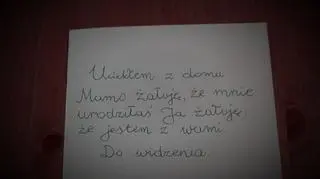 Uciekłem z domu
Mamo żałuję, że mnie
urodziłaś Ja żałuję
że jestem z wami.
Do widzenia.